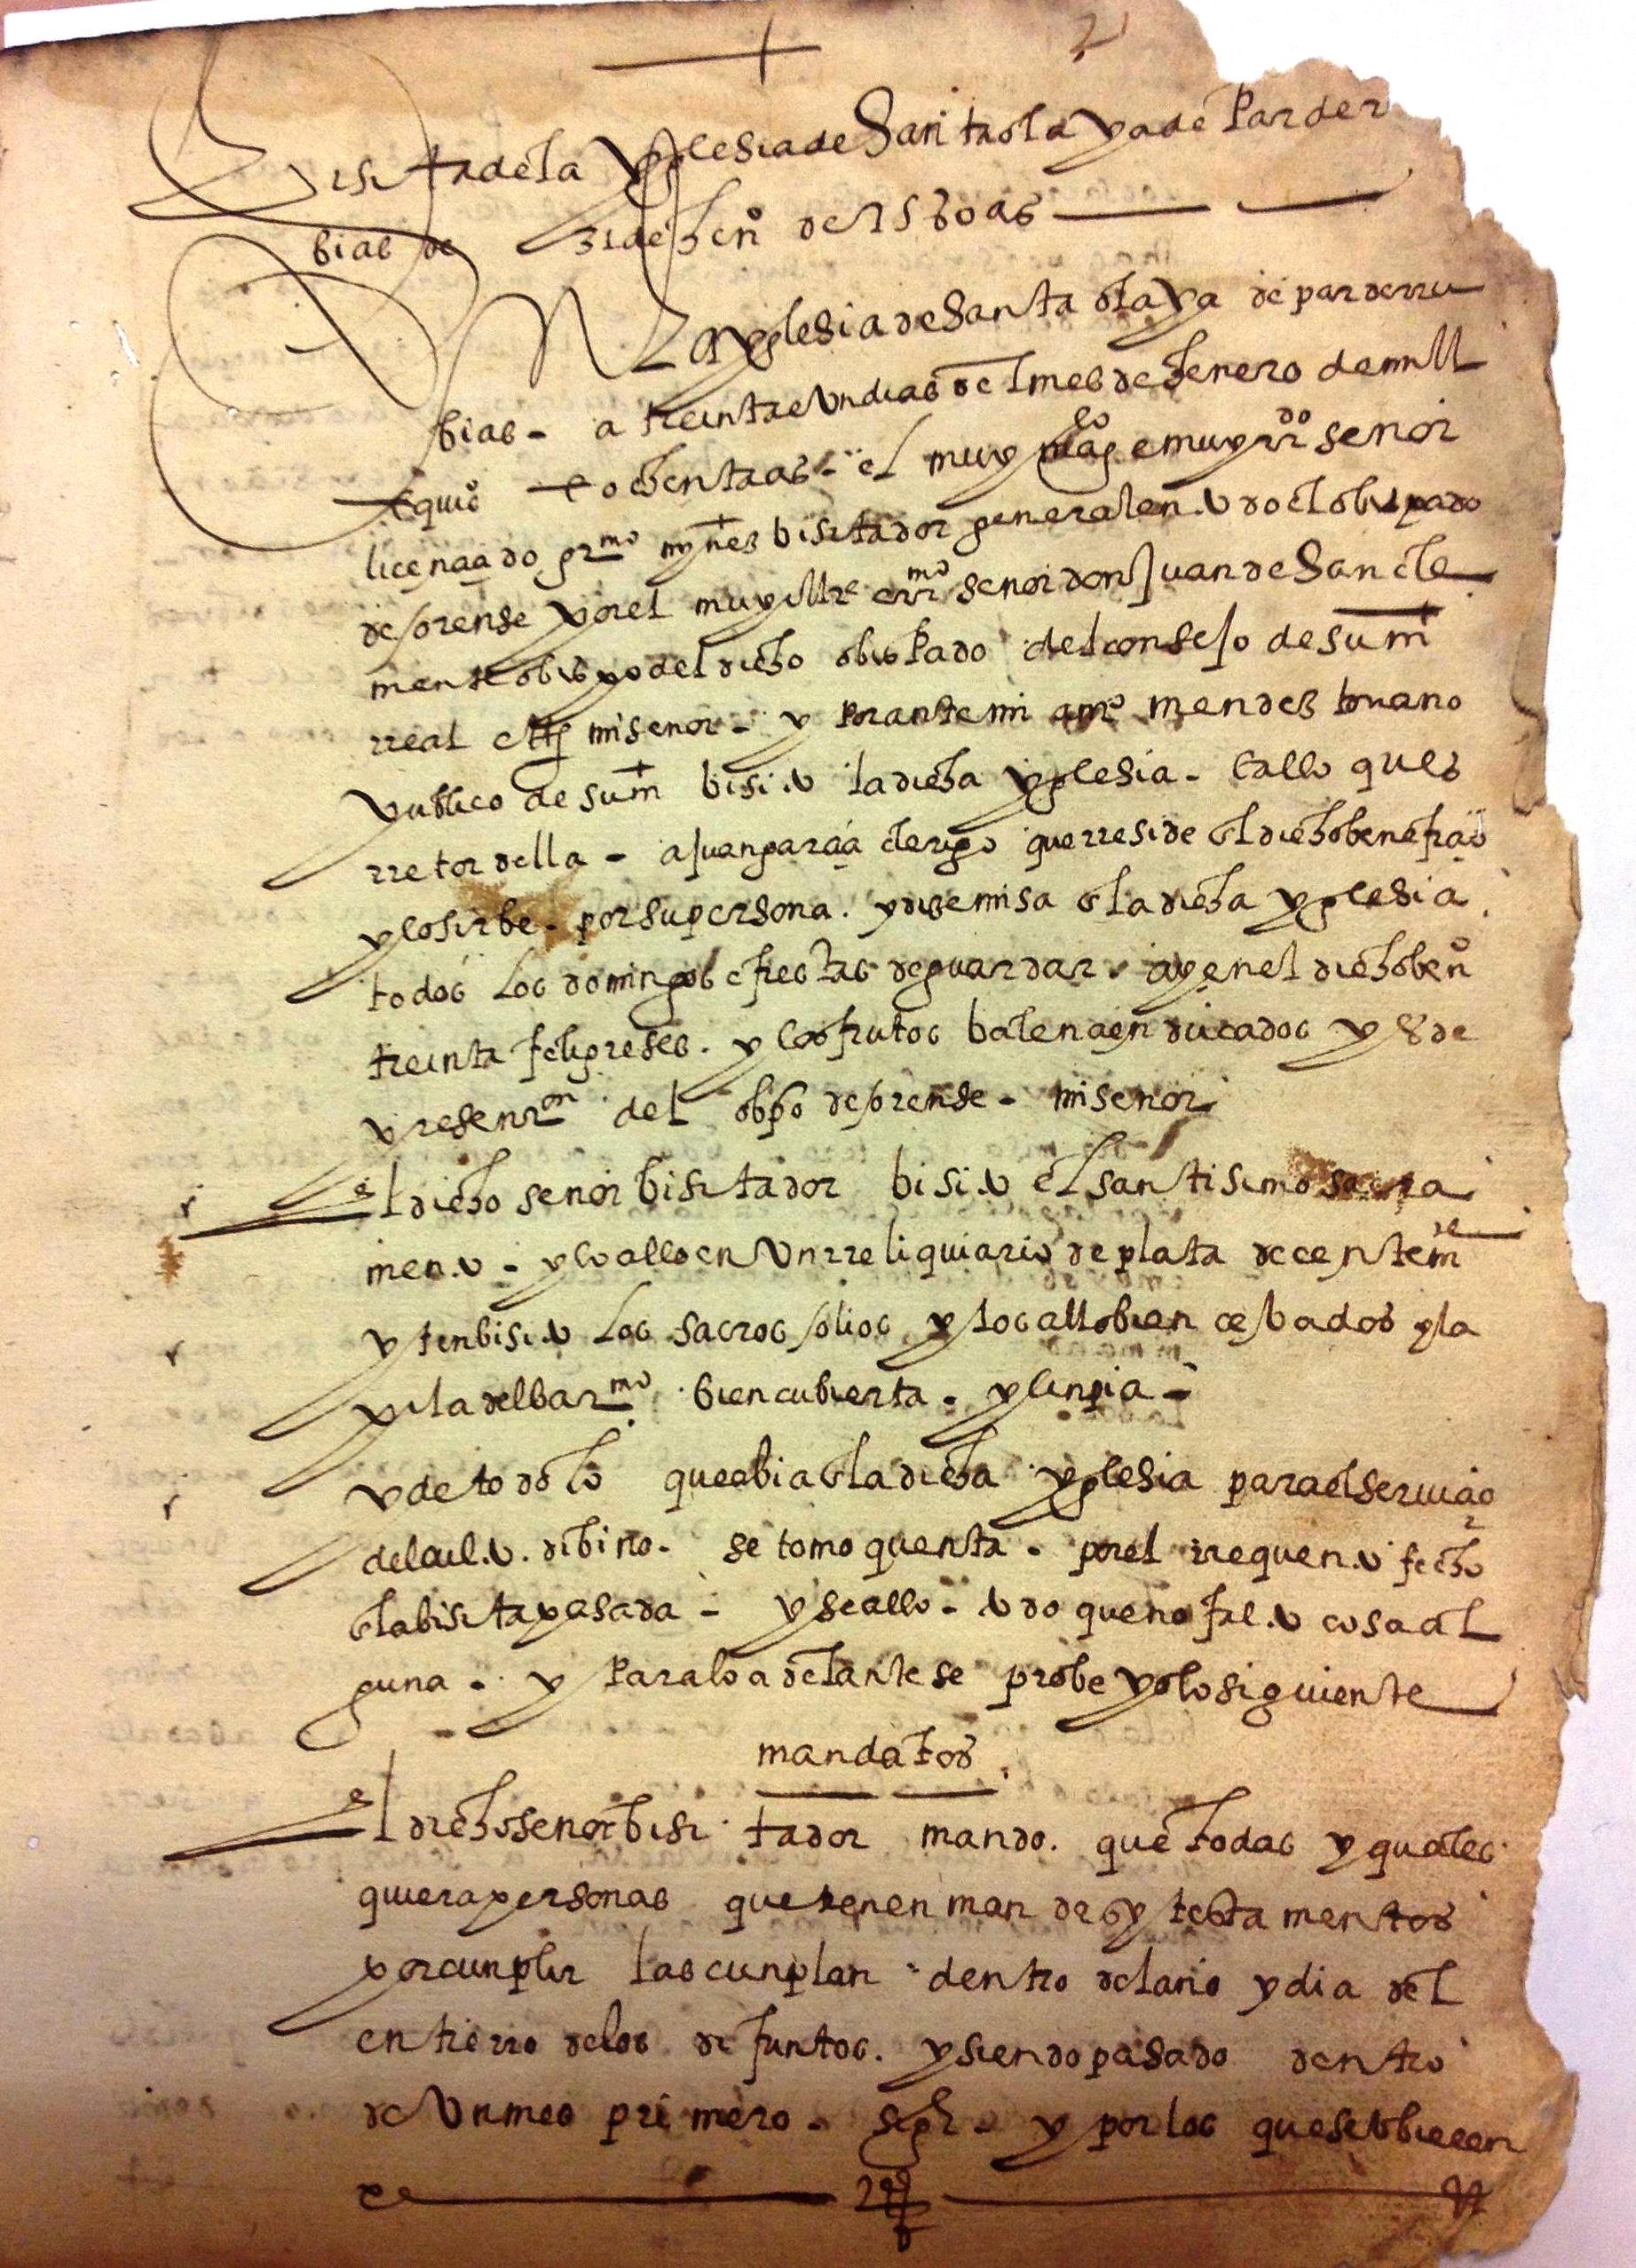 2
Visita de la yglesia de Santa olaya de Parder
bias
En la yglesia de Santa olaya de parderru
bias - a treinta e un dias del mes de henero de mill
e quis e ochenta as - el muy mag^co e muy rr^do señor
licençiado gr^mo m̃nes bisitador general en todo el obispado
de orense por el muy illre e rr^mo señor don Juan de San cle
mente obispo del dicho obispado del consejo de su m
rreal etc mi señor - y por ante mi mendes notario
publico de su m bisito la dicha yglesia - hallo ques
rretor della - a juan garçia clerigo que rreside el dicho benefiçio
y lo sirbe - por su persona. y dize misa en la dicha yglesia
todos los domingos e fiestas de guardar. ay en el dicho ben^o
treinta feligreses. y los frutos balen çien ducados y es de
presenr^on del obpo de orense - mi señor
El dicho señor bisitador bisito el santisimo sacra
mento - y lo allo en un rreliquiario de plata decentem^te
yten bisito los sacros olios y los allo bien çebados y la
pila del bau^mo bien cubierta - y linpia -
y de todo lo que abia en la dicha yglesia para el serviçio
del culto dibino - se tomo quenta - por el ynquento fecho
en la bisita pasada - y se allo - todo que no falto cosa al
guna - y para lo adelante se probeyo lo siguiente
mandatos
El dicho señor bisi tador mando. que todas y quales
quiera personas que tienen man das y testamentos
por cunplir las cunplan dentro del año y dia del
entierro de los defuntos. y siendo pasado dentro
de un mes primero - sigte - y por los que se ubieren